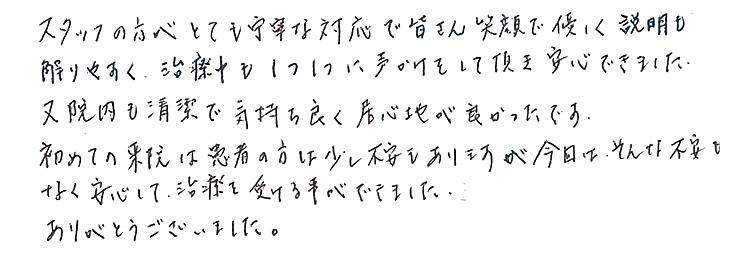 スタッフの方がとても丁寧な対応で皆さん笑顔で優しく説明も
解りやすく、治療中も1つ1つに声かけをして頂き安心できました.
又院内も清潔で気持ち良く居心地が良かったです.
初めての来院は患者の方は少し不安もありますが今日は、そんな不安も
なく安心して、治療を受ける事ができました.
ありがとうございました。